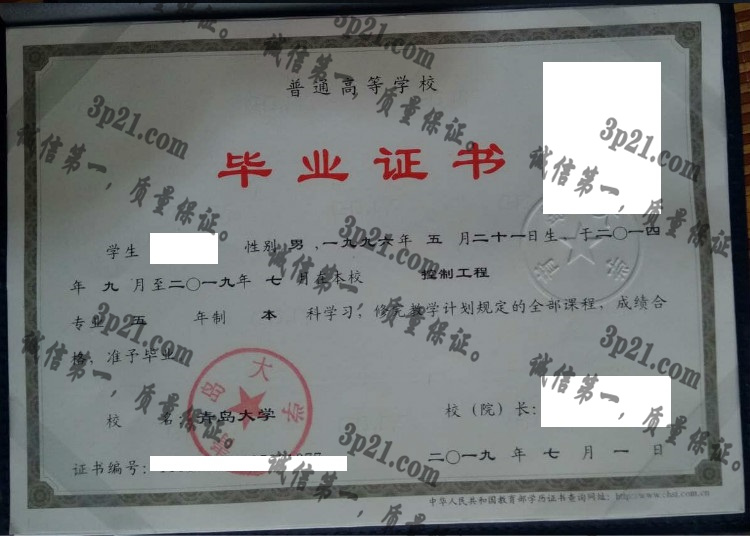 普通高等学校
毕业证书
学生 性别 男，一九九六年 五 月二十一日生，于二〇一四
年 九 月至二〇一九年 七 月在本校 控制工程
专业 五 年制 本 科学习，修完教学计划规定的全部课程，成绩合
格，准予毕业
校 名：青岛大学 校（院）长：
证书编号： 二〇一九 年 七 月 一 日
中华人民共和国教育部学历证书查询网址：http://www.chsi.com.cn
青岛大学
3p21.com
诚信第一，质量保证。
3p21.com
诚信第一，质量保证。
3p21.com
诚信第一，质量保证。
3p21.com
诚信第一，质量保证。
3p21.com
诚信第一，质量保证。
3p21.com
诚信第一，质量保证。
3p21.com
诚信第一，质量保证。
3p21.com
诚信第一，质量保证。